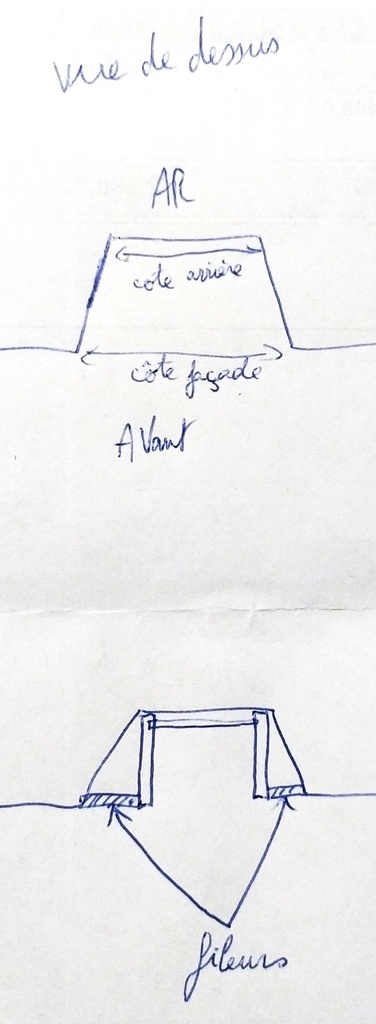 vue de dessus
AR
côte arrière
côte façade
AVant
fileurs